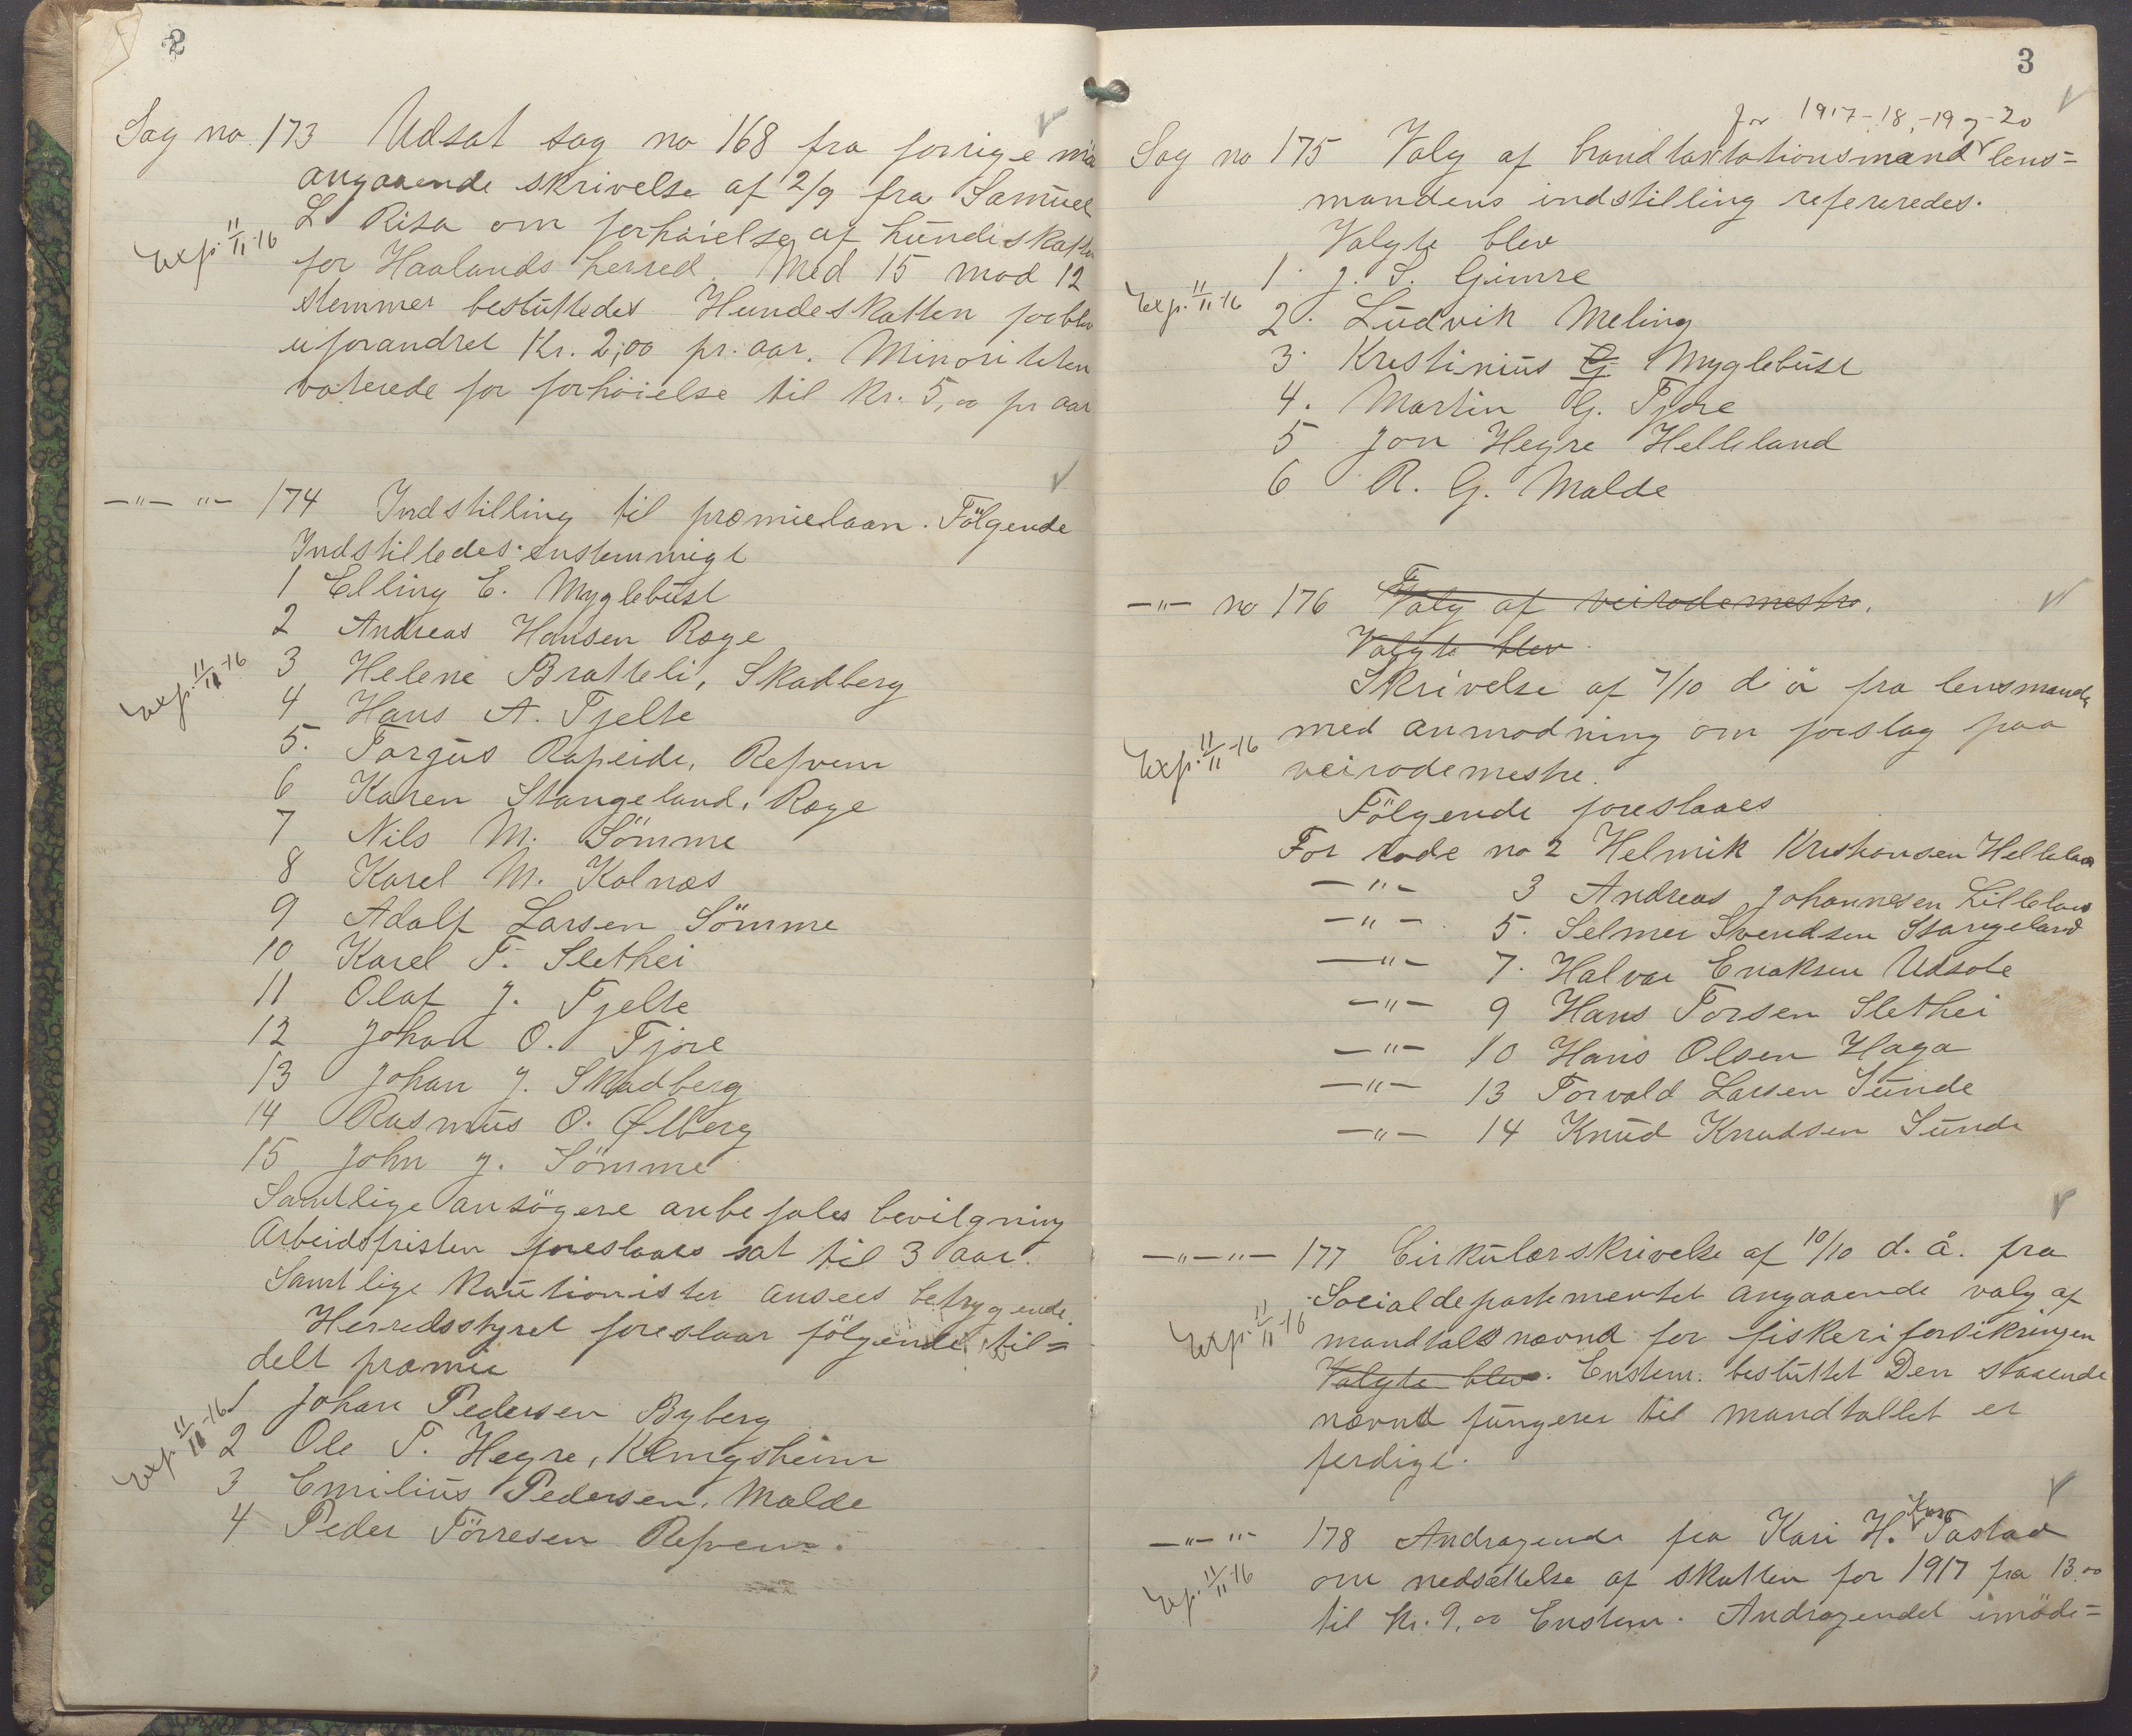 2
Sag no 173 Udsat sag no 168 fra forrige mö
angaaende skrivelse af 2/9 fra Samuel
L Risa om forhöielse af hundeskatten
Exp. 11/11-16
for Haalands herred. Med 15 mod 12
stemmer besluttedes Hundeskatten forblev
uforandret Kr. 2,00 pr. aar. Minoriteten
voterede for forhöielse til kr. 5,00 pr aar
—"— "— 174 Indstilling til præmielaan. Fölgende
Indstilledes enstemmigt
1 Elling E. Myglebüst
2 Andreas Hansen Røge
3 Helene Bratteli, Skadberg
Exp. 11/11-16
4 Hans A. Tjelte
5. Torgus Rapeide, Refvem
6 Karen Stangeland, Røge
7 Nils M. Sömme
8 Karel M. Kolnæs
9 Adolf Larsen Sömme
10 Karel T. Slethei
11 Olaf J. Tjelte
12 Johan O. Tjore
13 Johan J. Skadberg
14 Rasmus O. Ølberg
15 John J. Sömme
Samtlige ansögere anbefales bevilgning
Arbeidsfristen foreslaaes sat til 3 aar.
Samtlige kautionister ansees betrygende.
Herredsstyret foreslaar fölgende til=
delt præmie
1 Johan Pedersen Byberg
Exp. 11/11-16
2 Ole T. Hegre,
3 Emilius Pedersen, Malde
4 Peder Törresen Refvem.
3
for 1917-18,-19 og -20
Sag no 175 Valg af brandtaxtationsmænd lens=
mandens indstilling refereredes.
Valgte blev
1. J. S. Gimre
Exp. 11/11-16
2. Ludvik Meling
3. Kristinius G Myglebüst
4. Martin G. Tjore
5 Jon Hegre Helleland
6 R. G. Malde
—"— no 176 Valg af veirodemestre.
Valgte blev
Skrivelse af 7/10 d å fra lensmanden
med anmodning om forslag paa
Exp. 11/11-16
veirodemestre.
Fölgende foreslaaes
For rode no 2 Helmik Kristiansen Hellelan
—"— 3 Andreas Johannesen Lillelan
—"— 5. Selmer Svendsen Stangeland
—"— 7. Halvar Enoksen Udsole
—"— 9 Hans Torsen Slethei
—"— 10 Hans Olsen Haga
—"— 13 Torvald Larsen Sunde
—"— 14 Knud Knudsen Sunde
—"—"— 177 Cirkulærskrivelse af 10/10 d. å. fra
Socialdepartementet angaaende valg af
Exp. 11/11-16
mandtalsnævnd for fiskeriforsikringen
Valgte blev. Enstem. besluttet Den staaende
nævnd fungerer til mandtallet er
ferdigt.
—"— "— 178 Andragende fra Kari H. Tastad
Exp. 11/11-16
om nedsættelse af skatten for 1917 fra 13.00
til kr. 9,00 Enstem. Andragendet imöde=